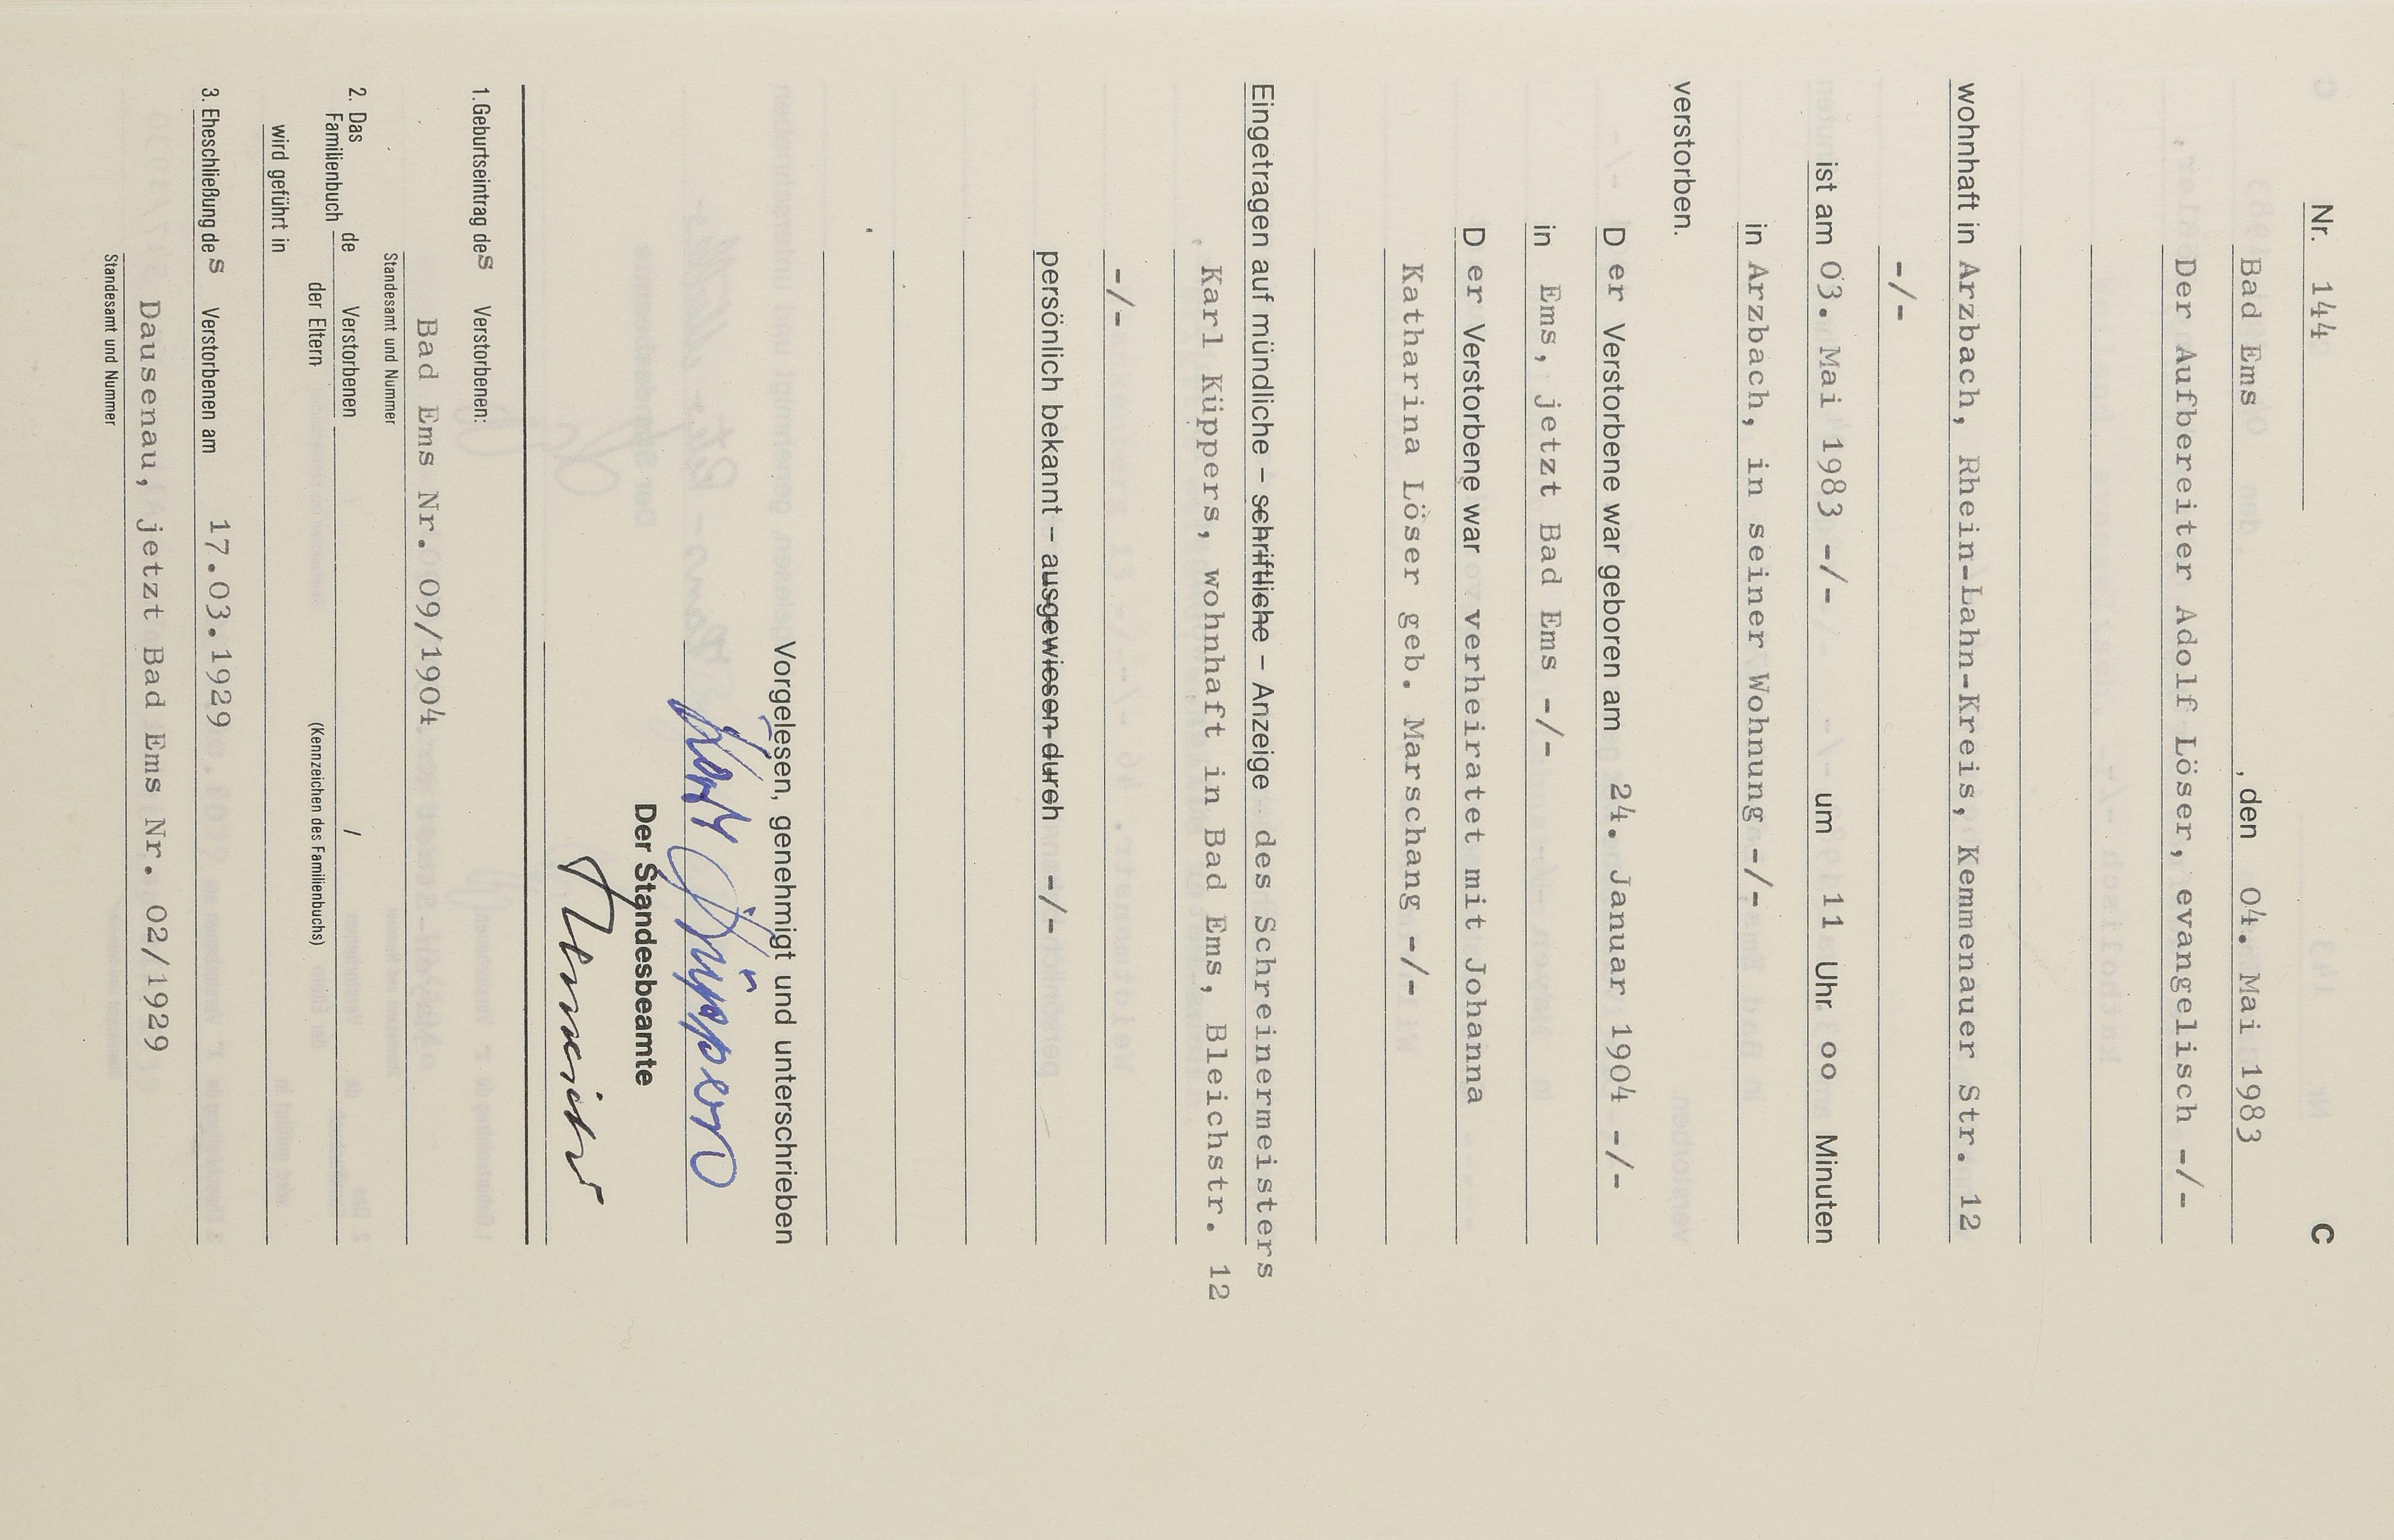 Nr. 144 C
Bad Ems , den 04. Mai 1983
Der Aufbereiter Adolf Löser, evangelisch -/-
wohnhaft in Arzbach, Rhein-Lahn-Kreis, Kemmenauer Str. 12
-/-
ist am 03. Mai 1983 -/- um 11 Uhr oo Minuten
in Arzbach, in seiner Wohnung -/-
verstorben.
D er Verstorbene war geboren am 24. Januar 1904 -/-
in Ems, jetzt Bad Ems -/-
D er Verstorbene war verheiratet mit Johanna
Katharina Löser geb. Marschang -/-
Eingetragen auf mündliche – schriftliche – Anzeige des Schreinermeisters
Karl Küppers, wohnhaft in Bad Ems, Bleichstr. 12
-/-
persönlich bekannt – ausgewiesen durch -/-
Vorgelesen, genehmigt und unterschrieben
Karl Küppers
Der Standesbeamte
1. Geburtseintrag des Verstorbenen:
Bad Ems Nr. 09/1904
Standesamt und Nummer
2. Das Familienbuch de Verstorbenen /
der Eltern (Kennzeichen des Familienbuchs)
wird geführt in
3. Eheschließung des Verstorbenen am 17.03.1929
Dausenau, jetzt Bad Ems Nr. 02/1929
Standesamt und Nummer